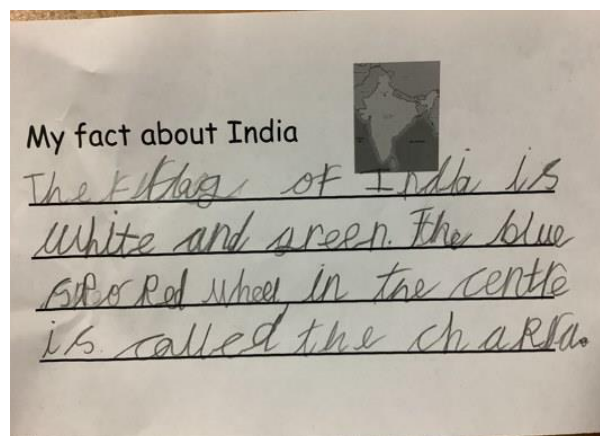 My fact about India
The flag of India is
white and green. The blue
spoked wheel in the centre
is called the chakra.